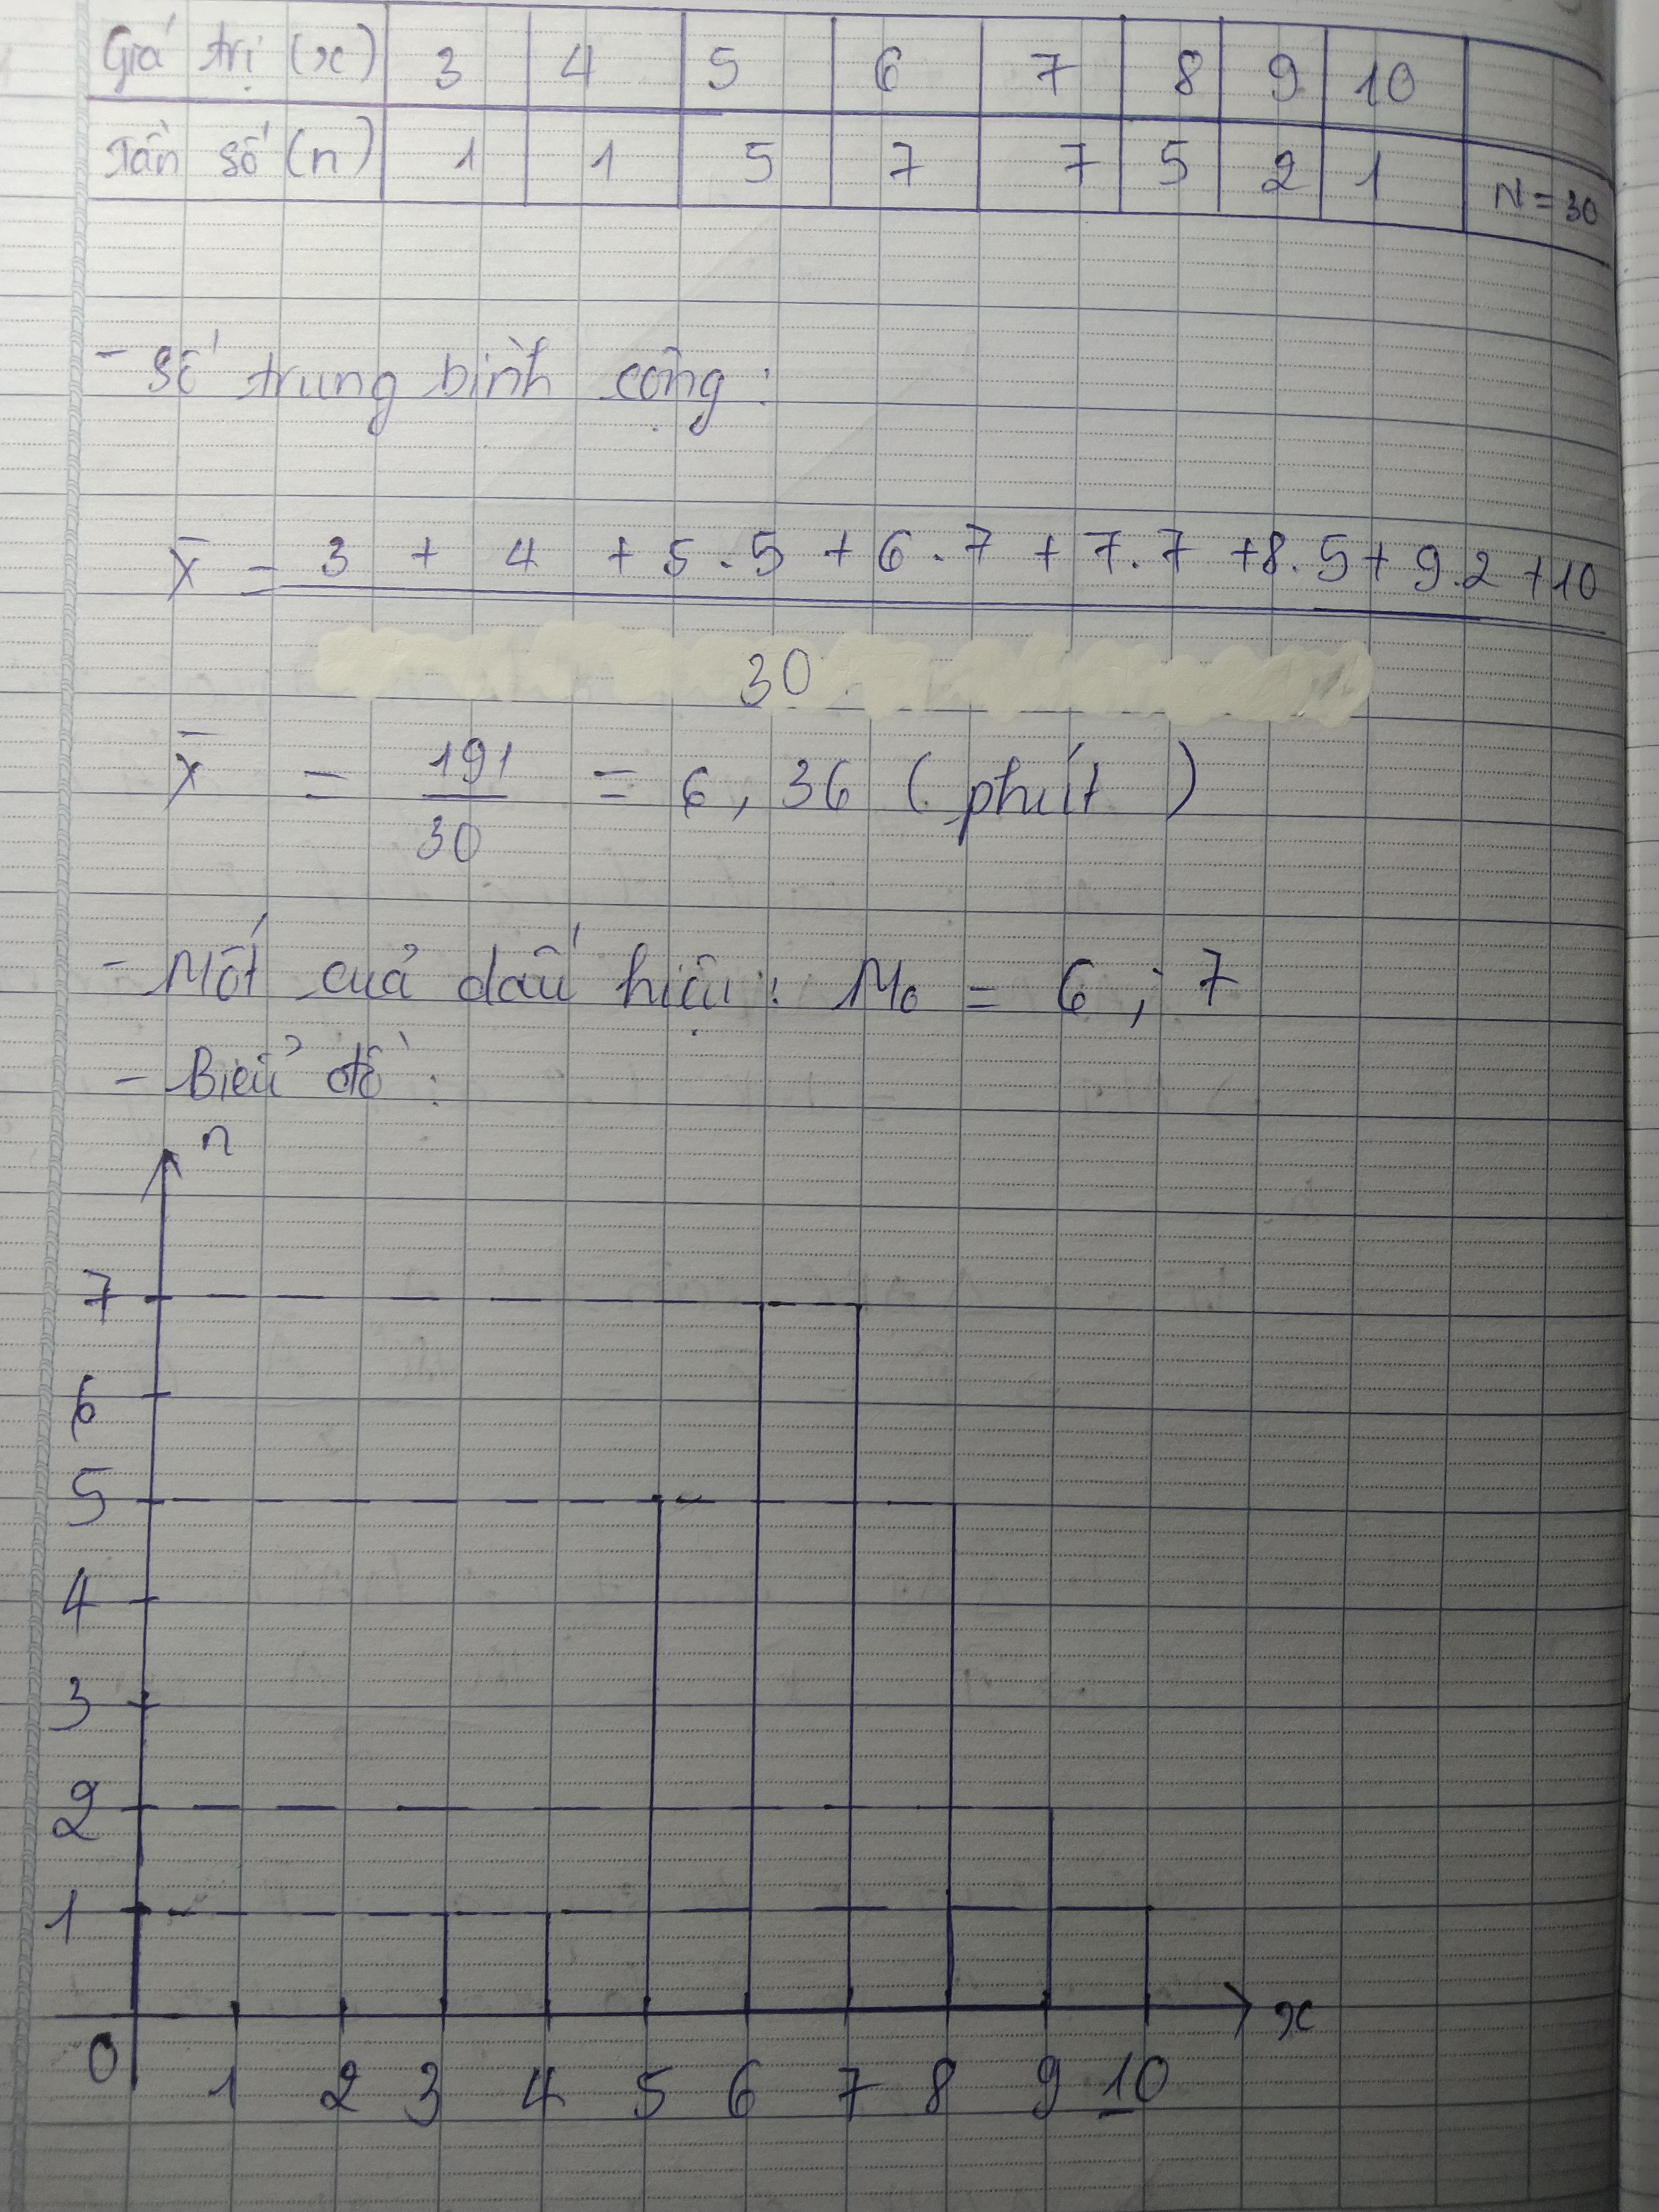 Giá trị (x) 3 4 5 6 7 8 9 10
Tần số (n) 1 1 5 7 7 5 2 1 N = 30
- Số trung bình cộng :
X̄ = 3 + 4 + 5 . 5 + 6 . 7 + 7 . 7 + 8 . 5 + 9 . 2 + 10
30
X̄ = 191/30 = 6,36 ( phút )
- Mốt cuả dấu hiệu : M₀ = 6 ; 7
- Biểu đồ :
n
7
6
5
4
3
2
1
x
0 1 2 3 4 5 6 7 8 9 10